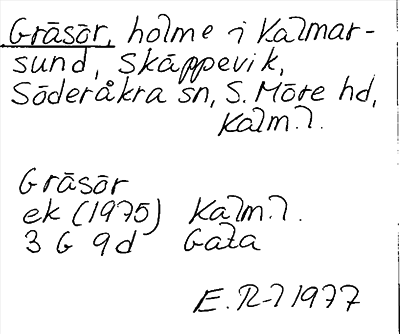 Gräsör, holme i Kalmar-
sund, Skäppevik,
Söderåkra sn, S. Möre hd,
Kalm. l.
Gräsör
ek (1975) Kalm. l.
3 G 9d Gata
E. R-l 1977